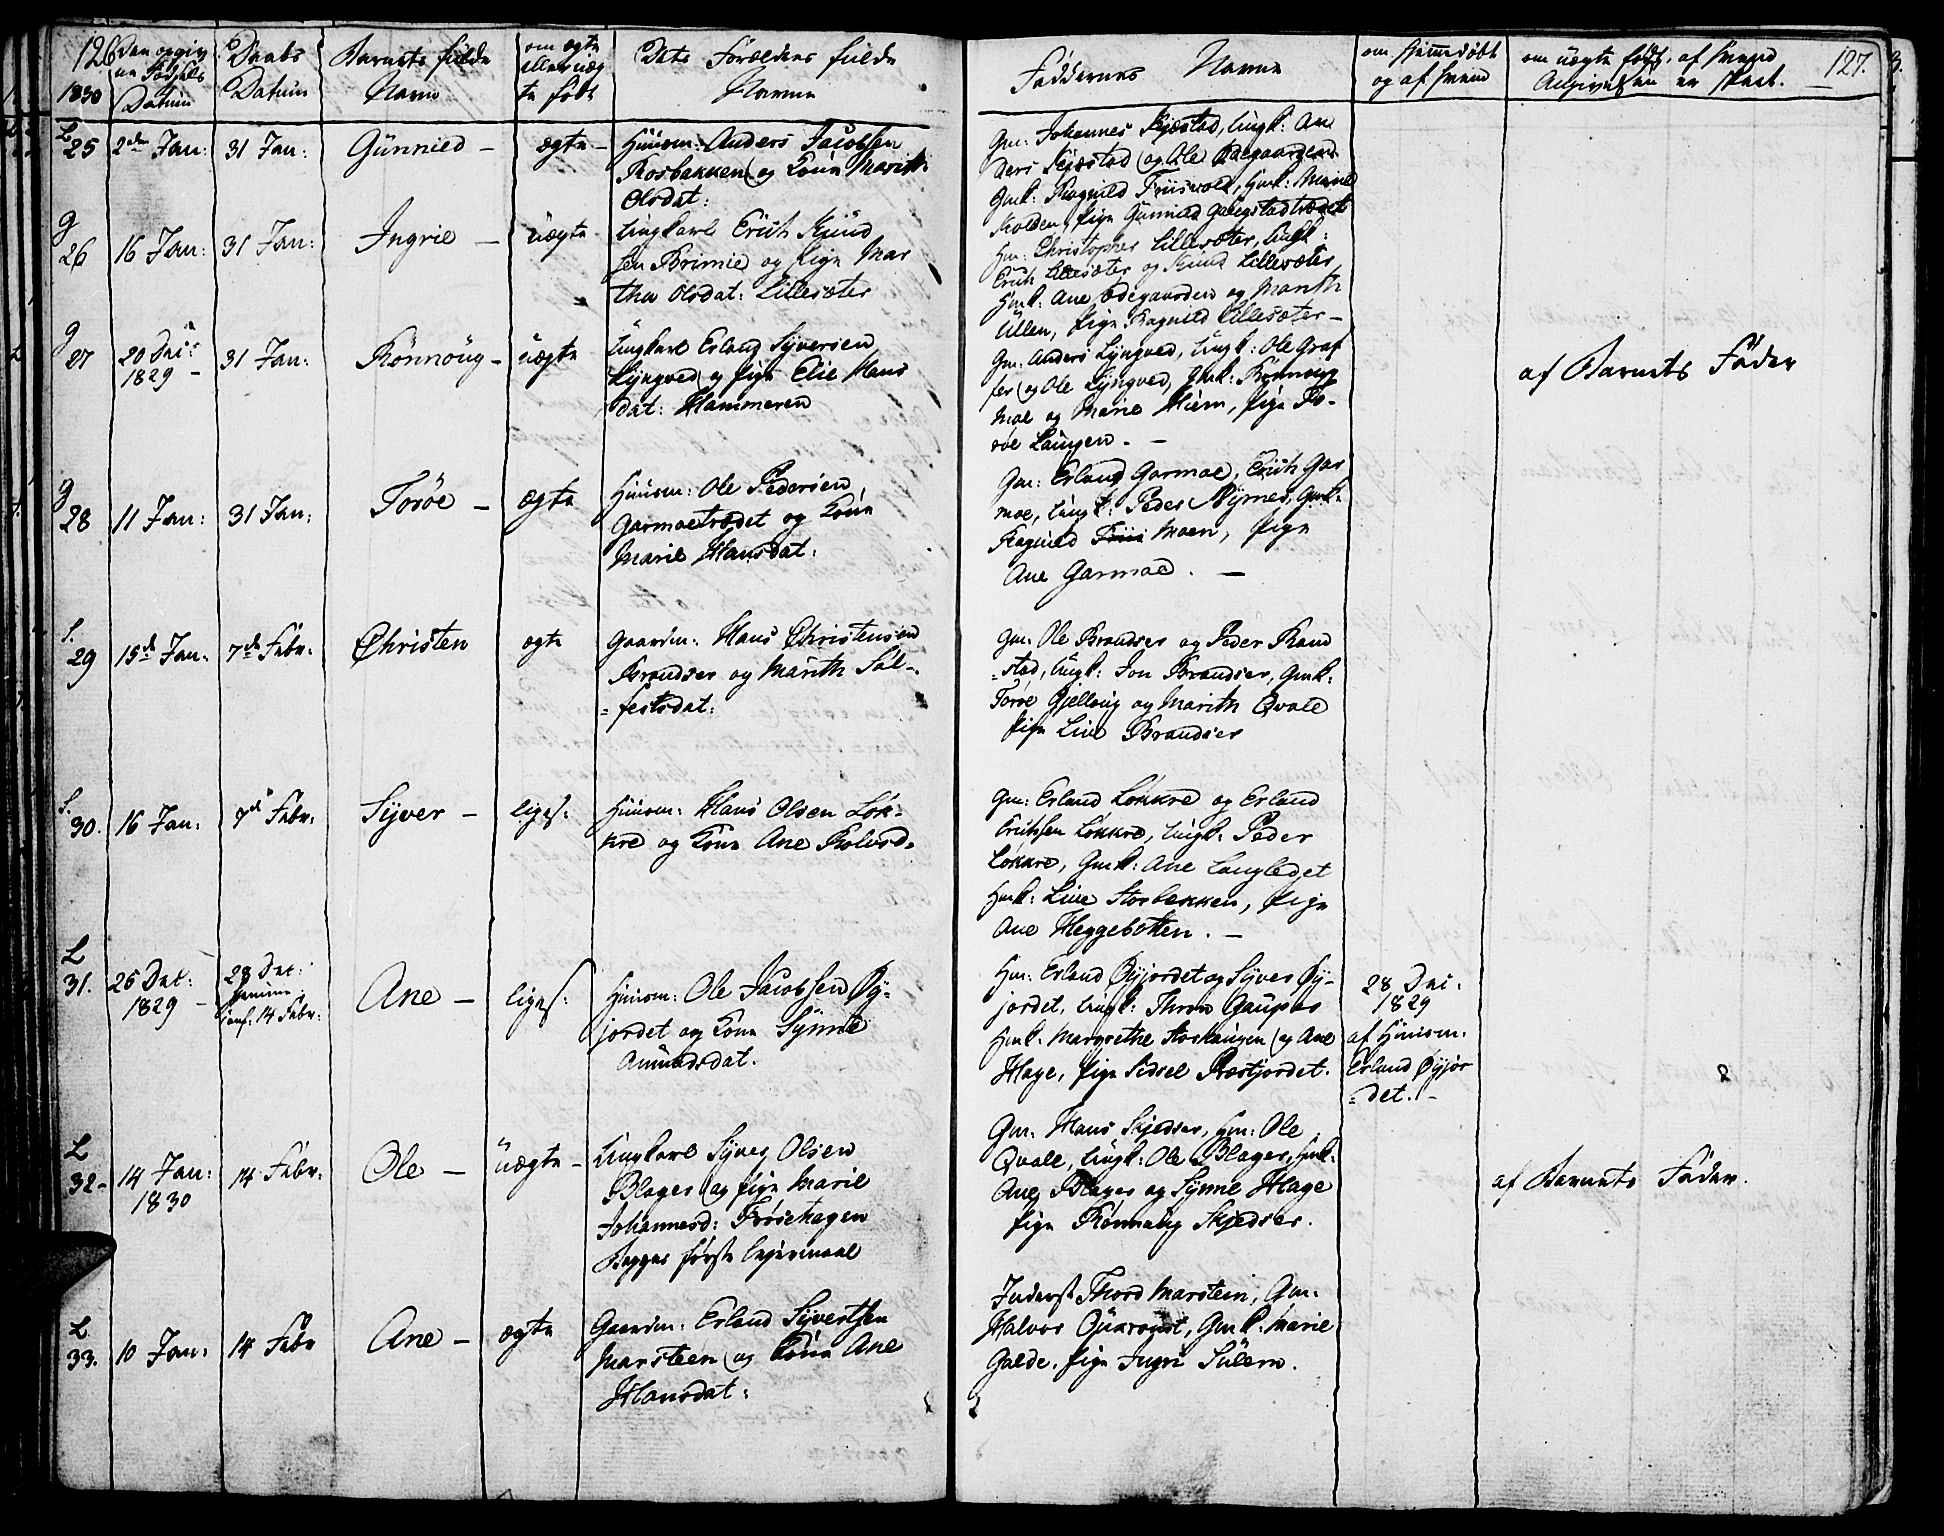 126
1830
Den opgiv
ne Fødsels
Datum
Daabs
Datum
Barnets fulde
Navn
om ægte
eller uæg
te født
Dets Forældres fulde
Navne
Faddernes Navne
om hjemmedøbt
og af hvem
om uægte født, af hvem
Angivelsen er skeet.
127.
L
25
2den Jan:
31 Jan:
Gunnild -
ægte -
Huusm: Anders Jacobsen
Rosbakken og Kone Marith
Olsdat:
Gm: Johannes Skjæstad, Ungk: An
ders Skjæstad og Ole Ødegaarden
Gmk: Ragnild Friisvold, Hmk: Marie
Kolden, Pige Gunnild
g
26
16 Jan:
31 Jan:
Ingrie -
uægte
Ungkarl Erich Knud
sen Brimie og Pige Mar
tha Olsdat: Lillesæter
Hm: Christopher Lillesæter, Ungk:
Erich Lillesæter og Knud Lillesæter,
Hmk: Ane Ødegaarden og Marith
Ullen, Pige Ragnild Lillesæter -
g
27
20 Dec:
1829 -
31 Jan:
Rønnoug -
uægte
Ungkarl Erland Syversen
Lyngved og Pige Elie Hans
dat: Hammeren
Gm: Anders Lyngved, Ungk: Ole Graf
fer og Ole Lyngved, Gmk: Rønnoug
Moe og Marie Hiem, Pige To-
røe Laugen. -
af Barnets Fader
g
28
11 Jan:
31 Jan:
Torøe -
ægte
Huusm: Ole Pedersen
Garmoetrædet og Kone
Marie Hansdat:
Gm: Erland Garmoe, Erich Gar
moe, Ungk: Peder Nyrnes, Gmk:
Ragnild Moen, Pige
Ane Garmoe. -
S.
29
15de Jan:
7de Febr:
Christen
ægte
Gaardm: Hans Christensen
Brandser og Marith Sal-
-festsdat:
Gm: Ole Brandser og Peder Rand
-stad, Ungk: Jon Brandser, Gmk:
Torøe Gjelloug og Marith Qvale
Pige Live Brandser
S.
30.
16 Jan:
7de Febr:
Syver -
liges:
Huusm: Hans Olsen Løk-
kre og Kone Ane Rolvsd.
Gm: Erland Løkkre og Erland
Erichsen Løkkre, Ungk: Peder
Løkkre, Gmk: Ane Langledet
Hmk: Live Storbekken, Pige
Ane Heggebotten. -
L
31.
26 Dec:
1829 -
28 Dec:
hjemme
conf: 14 Febr:
Ane -
liges:
Huusm: Ole Jacobsen Øy-
jordet og Kone Synne
Amundsdat:
Hm: Erland Øyjordet og Syver Øy-
jordet, Ungk: Thron Gaupar
Hmk: Margrethe Storhaugen og Ane
Hage, Pige Sidsel Præstjordet.
28 Dec:
1829
af Huusm:
Erland Øyjor
-det. -
L
32-
14 Jan:
1830
14 Febr:
Ole -
uægte -
Ungkarl Syver Olsen
Blager og Pige Marie
Johannesd: Frøsehagen
Begges første Lejermaal
Gm: Hans Skjedser, Hm: Ole
Qvale, Ungk: Ole Blager, Hmk:
Ane Blager og Synne Hage
Pige Rønnaug Skjedser.
af Barnets Fader.
L
33.
10 Jan:
14 Febr
Ane -
ægte
Gaardm: Erland Syvertsen
Marsteen og Kone Ane
Hansdat:
Inderst Thord Marstein, Gm:
Halvor Qvarqvit, Gmk: Marie
Galde, Pige Ingri Sulem.